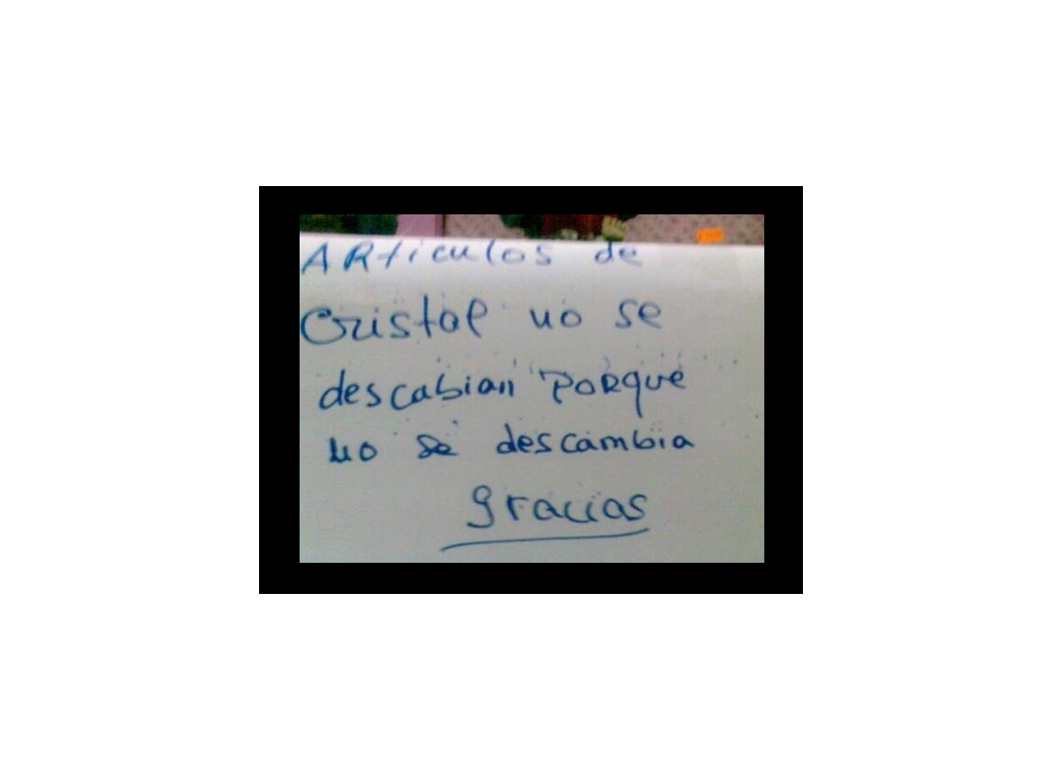 ARticulos de
Cristal no se
descabian PoRque
no se descambia
gracias